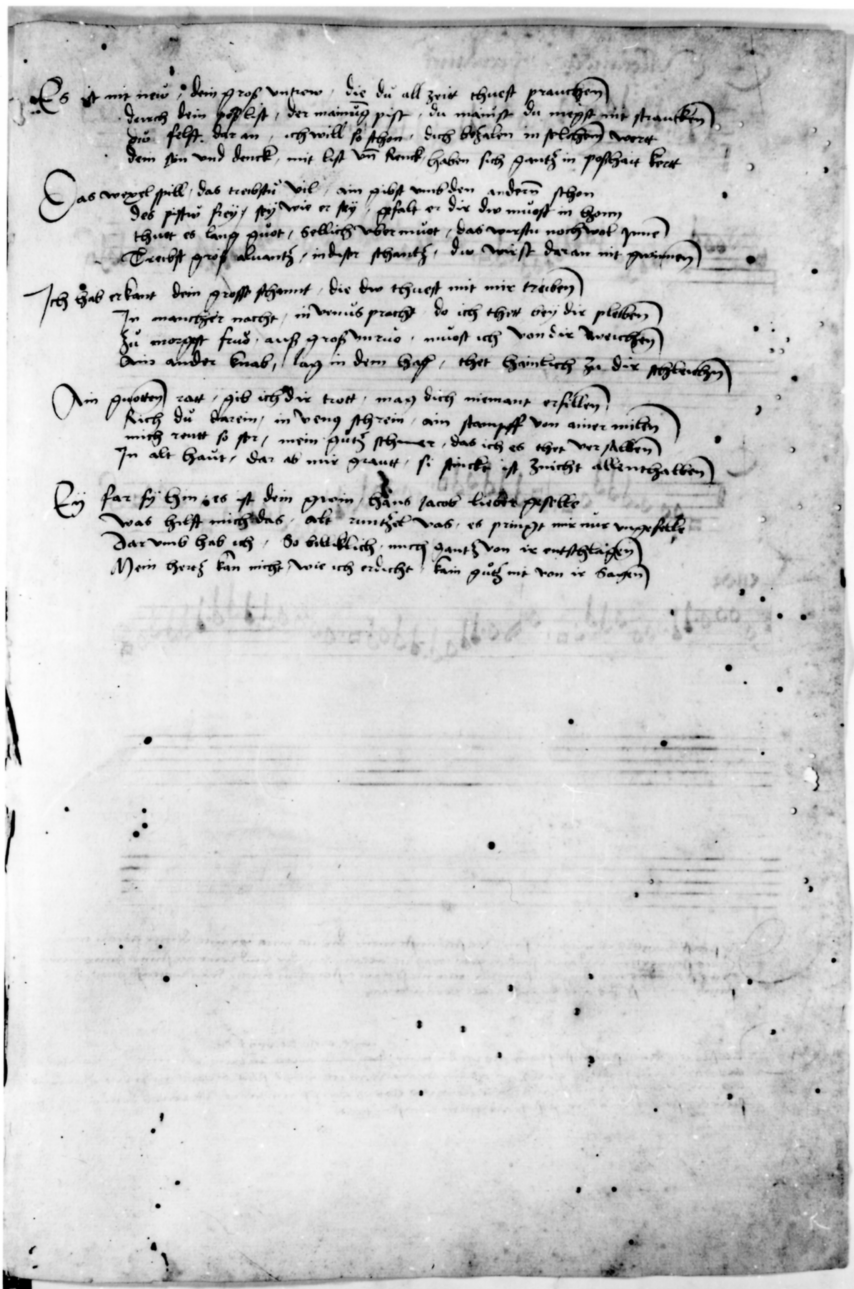 Es ist nit new, dein groß untrew, die du all zeit thuest prauchen
durch dein poß list, der mainūg pist, du mainst du megst nit straucken
du felst dar an, ich will so schon, dich bezalen in solchem wert
dein sin und denck, mit list uñ Renck haben sich gantz in poßhait kert
Das wexel spill, das treibstu vil, ain gibst umb den andern schon
des pistu frey, sey wie er sey, gefalt er dir du muost in hon
thuet es lang guot, sollich ubermuot, das wirstu noch wol Inne
Treibst groß aluantz, in diser schantz, du wirst daran nit gwinnen
Ich hab erkant dein grosse schannt, die du thuest mit mir treiben
In mancher nacht, in venus pracht, do ich thet bey dir pleiben
zu morgest fruo, auß groß unruo, muost ich von dir weichen
Ain ander knab, lag in dem haff, thet haimlich zu dir schleichen
Ain guoten ratt, gib ich dir trott, mag dich niemant erfillen
Rich du darein, in veng schrein, ain stampff von ainer millen
mich reut so ser, mein guetz, das ich es thet versalben
In alt haut, dar ab mir graut, si stinckt ist znicht allenthalben
Ey far sy hin, es ist dein gwin, hans Jacob liebster geselle
was hilft mich das, alt runtzel vas, es pringt mir nur ungefelle
Dar umb hab ich, so billiklich, mich gantz von ir entschlagen
Mein hertz kan nicht, wie ich erdicht, kain guetz nit von ir sagen